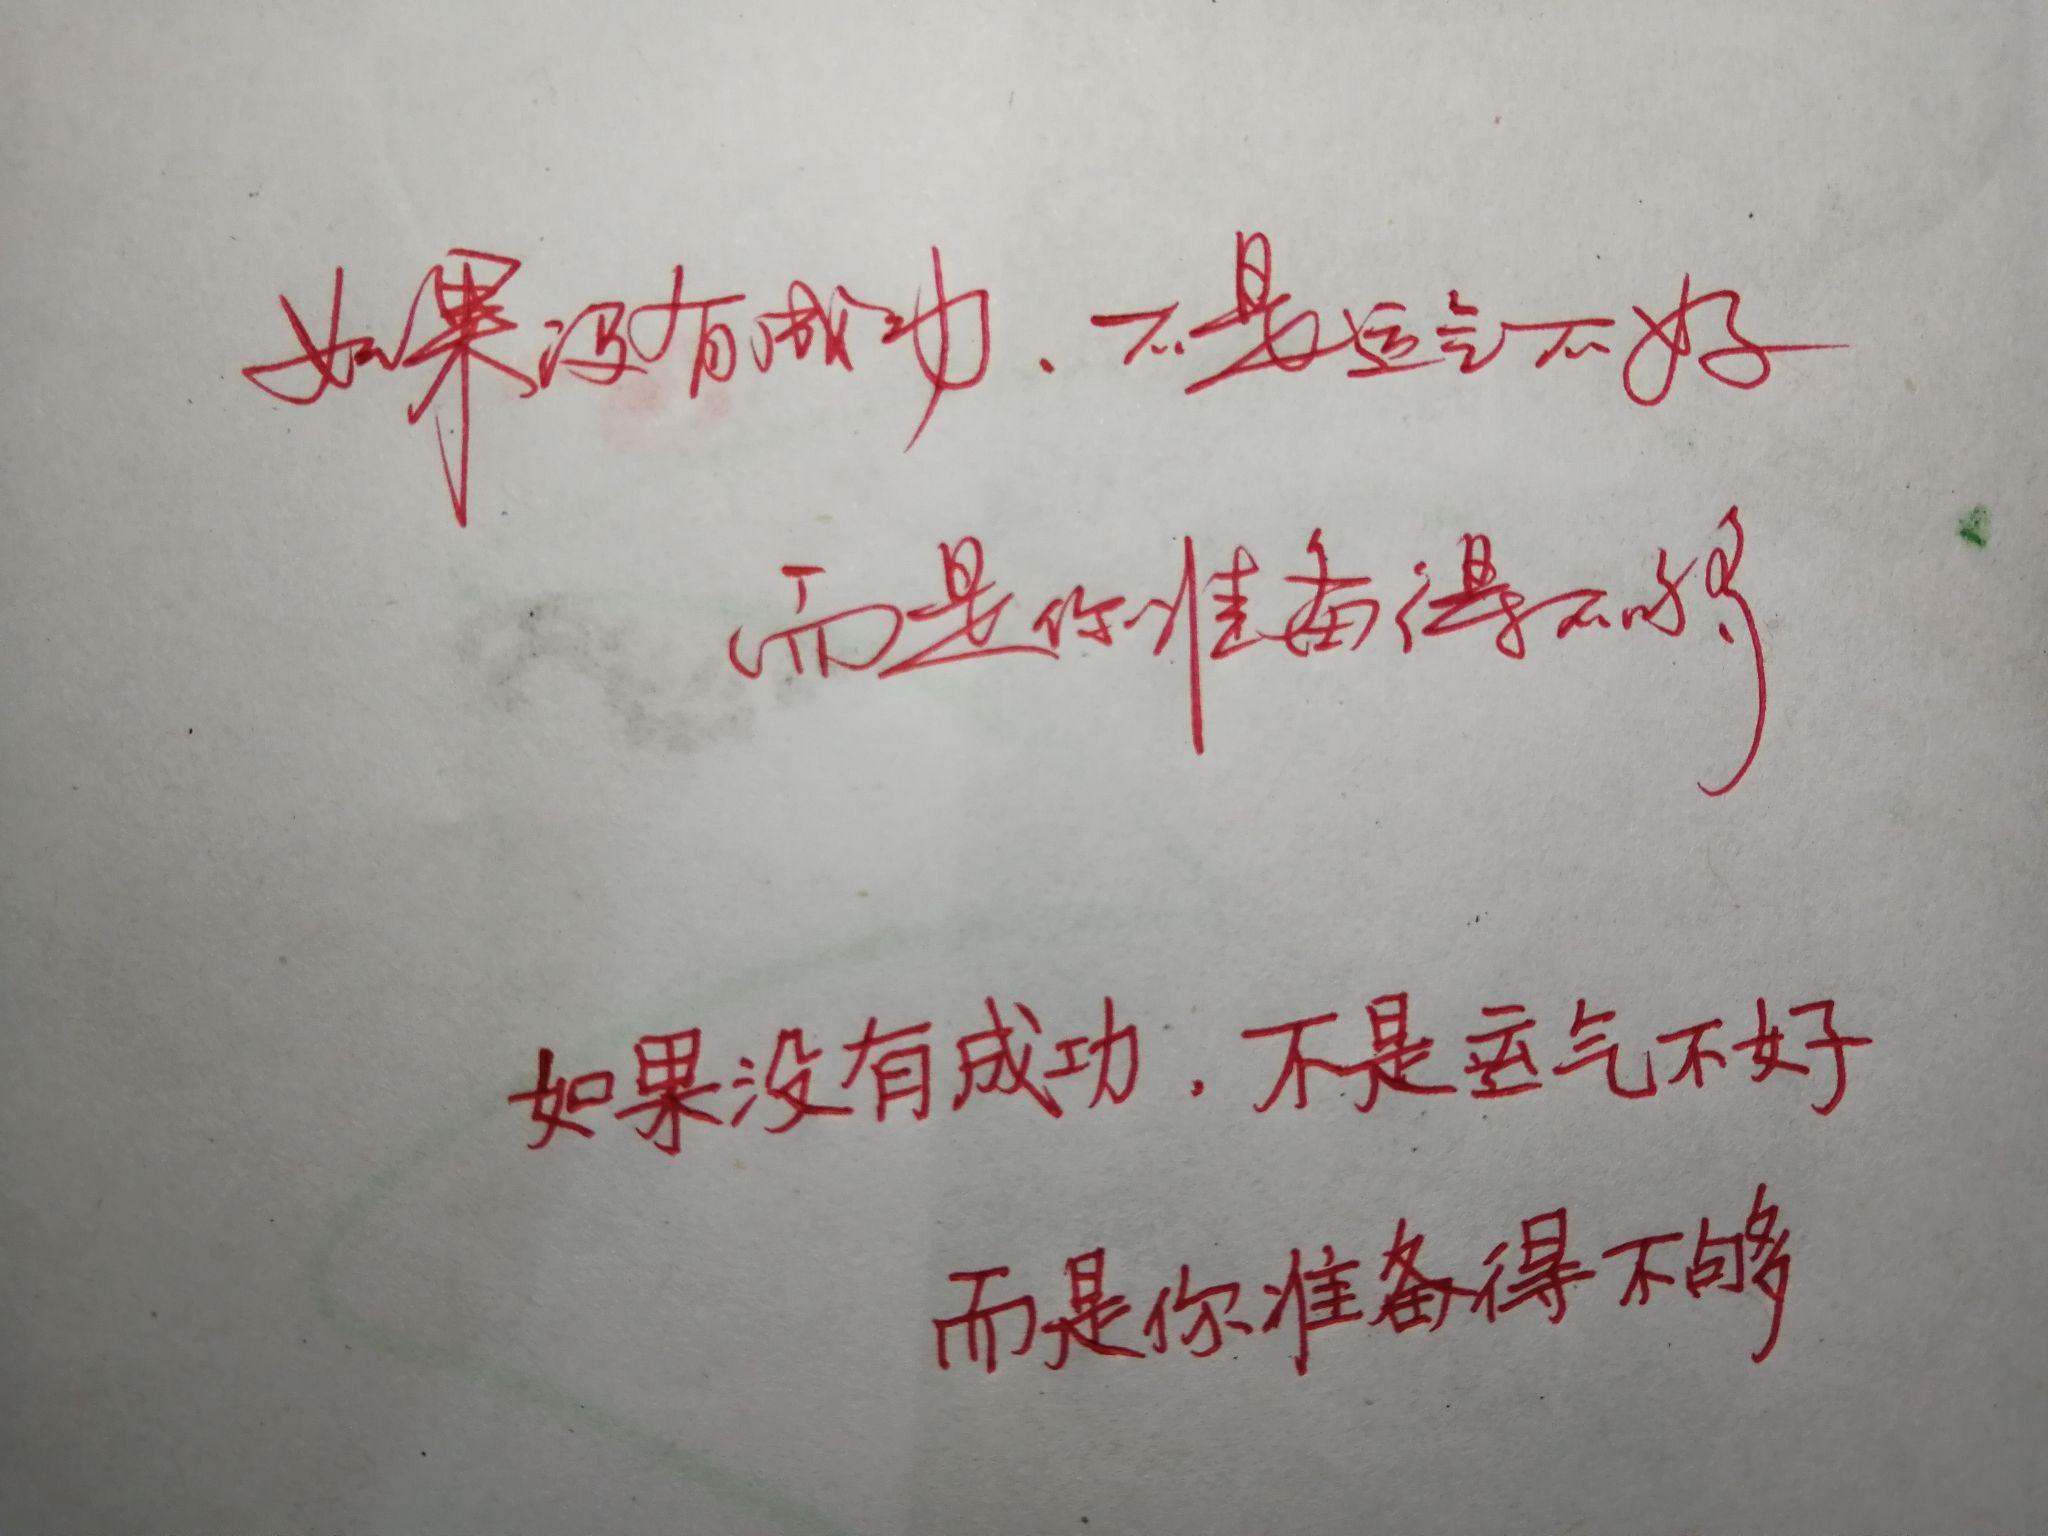 如果没有成功.不是运气不好
而是你准备得不够
如果没有成功.不是运气不好
而是你准备得不够